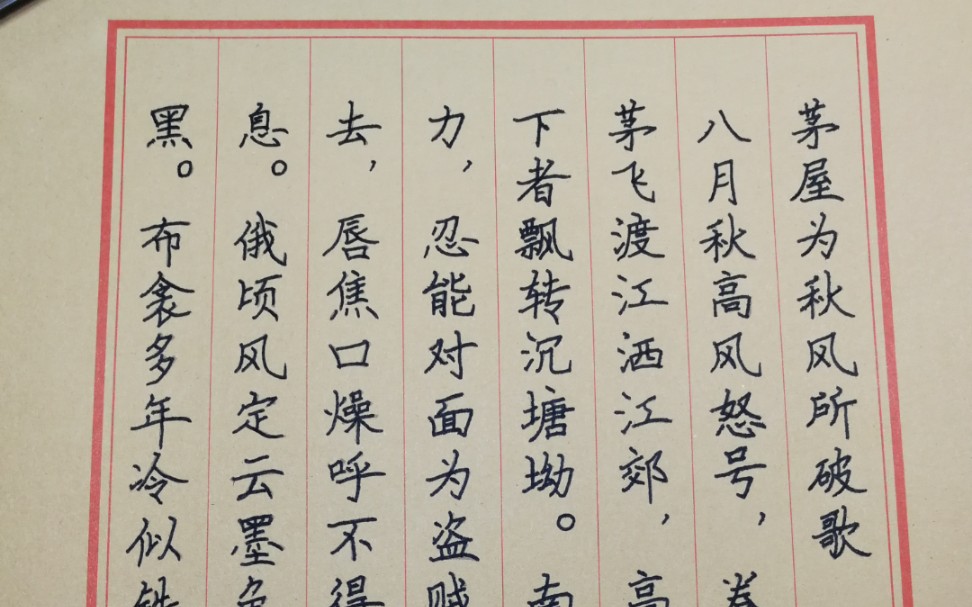 茅屋为秋风所破歌
八月秋高风怒号，卷
茅飞渡江洒江郊，高
下者飘转沉塘坳。南
力，忍能对面为盗贼
去，唇焦口燥呼不得
息。俄顷风定云墨色
黑。布衾多年冷似铁